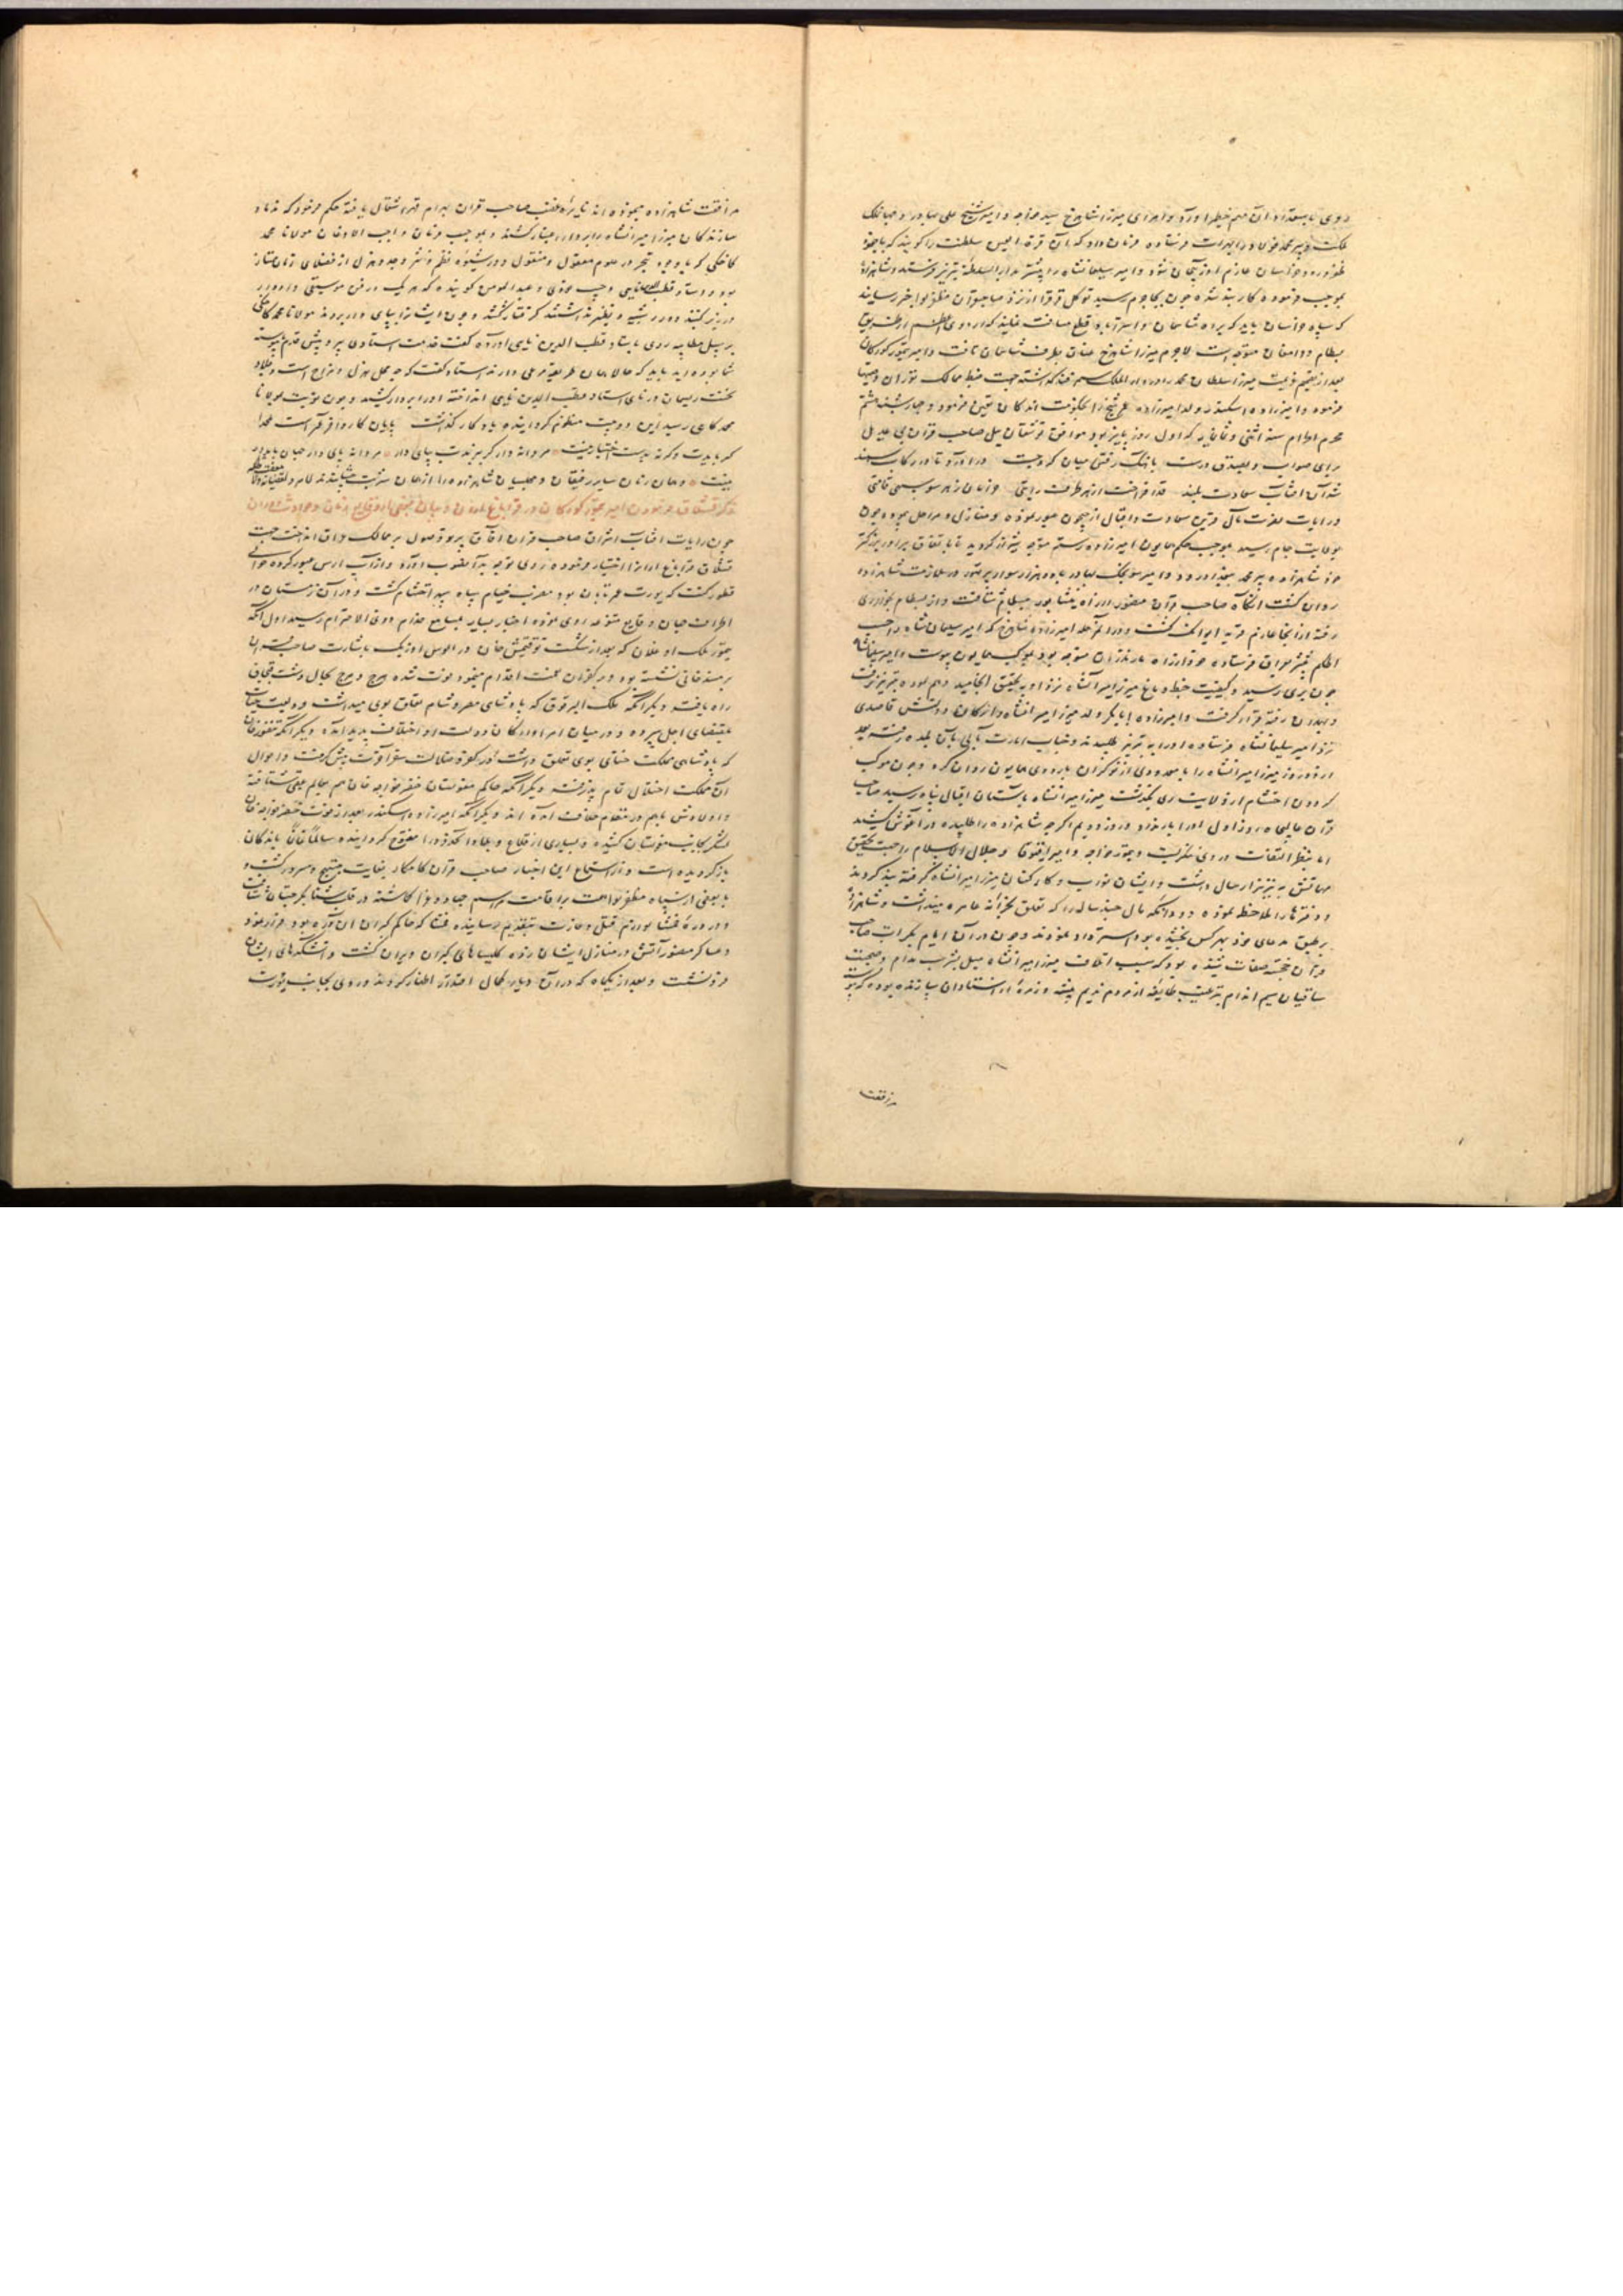 روی باستعداد آن مهم خطیر آورد و امرای میرزا شاهرخ سید خواجه و امیر شیخ علی بهادر و جهانملک
ملکت و پیر محمد فولاد را بهرات فرستاده فرمان داد که آن قرة العین سلطنت را گویند که با جنود
ظفر ورود خراسان عازم آذربیجان شود و امیر سلیمانشاه را پیشتر بدار السلطنه تبریز فرستد و شاهزاده
بموجب فرموده کاربند شده چون بجام رسید توکل قرقرا از نزد صاحبقران مظفر لوا خبر رسانید
که سپاه خراسان باید که براه شاسمان و استراباد قطع مسافت نمایند که اردوی اعظم از طریق
بسطام و دامغان متوجه است لاجرم میرزا شاهرخ عنان بطرف شاسمان تافت و امیر تیمور کورکان
بعد از تقدیم میرزا سلطان محمد را در دار الملک سمرقند گذاشته جهت ضبط ممالک توران
فرموده و امیرزاده اسکندر ولد امیرزاده عمر شیخ را بحکومت اندکان تعیین فرمود و چهارشنبه هشتم
محرم الحرام سنه اثنی و ثمانمایه که اول روز پاییز بود موافق توشقان ییل صاحب قران بی عدیل
برای صواب و بصدق درست باهنک رفتن میان کرد چست درآورد تا در رکاب سمند
شد آن آفتاب سعادت بلند قد افراخت از هر طرف رایتی روان از هر سو سهی قامتی
و رایات نصرت مآل قرین سعادت و اقبال از جیحون عبور نموده و منازل و مراحل پیموده چون
بولایت جام رسید بموجب حکم همایون امیرزاده رستم متوجه شیراز کردید تا باتفاق برادر بزرگتر
خود شاهزاده پیر محمد ببغداد رود و امیر سونجک بهادر با دو هزار سوار در ملازمت شاهزاده
روان گشت انگاه صاحب قران منصور از راه نیشابور ببسطام شتافت و از بسطام بخوار ری
رفته از آنجا عازم قریه ایوانک گشت و در آن مرحله امیرزاده شاهرخ که امیر سلیمان شاه را حسب
الحکم پیشتر بعراق فرستاده خود از راه مازندران متوجه بود بموکب همایون پیوست و امیر سلیمانشاه
چون بری رسید و کیفیت خبط دماغ میرزا میرانشاه نزد او به تحقیق انجامید
و بهمدان رفته قرار گرفت و امیرزاده ابابکر ولد میرزا میرانشاه و ارکان دولتش قاصدی
نزد امیر سلیمانشاه فرستاده او را به تبریز طلبیدند و جناب امارت مآبی بآن بلده رفته بعد
از دو روز میرزا میرانشاه را با معدودی از نوکران باردوی همایون روان کرد و چون موکب
گردون احتشام از ولایت ری بگذشت میرزا میرانشاه بآستان اقبال پناه رسید صاحب
قران عالیجاه روز اول او را بار نداد و روز دوم اگرچه شاهزاده را طلبیده در آغوش کشید
اما بنظر التفات در وی ننگریست و تیمور خواجه و امیر اقبوقا و جلال الاسلام را جهت تحقیق
مهماتش به تبریز ارسال داشت و ایشان نواب و کارکنان میرزا میرانشاه گرفته بند کردند
و دفترها را ملاحظه نموده و دو دانگه مال چند ساله را که تعلق بخزانه عامره میداشت و شاهزاده
بر طبق مدعای خود بهرکس بخشیده بود استرداد نمودند و چون در آن ایام بکرات صاحب
قران خجسته صفات شنیده بود که سبب اتلاف میرزا میرانشاه میل بشرب مدام و صحبت
ساقیان سیم اندام بترغیب طایفه از مردم ندیم پیشه و زمره از استادان سازنده بوده که پیوسته
مرافقت
مرافقت شاهزاده مینموده اند نایره غضب صاحب قران بهرام قهر اشتعال یافته حکم فرمود که ندما و
سازندکان میرزا میرانشاه را بردار عبار کشند و بموجب فرمان واجب الاذعان مولانا محمد
کاخکی که باوجود تبحر در علوم معقول و منقول و در شیوه نظم و نثر و جد و هزل از فضلای زمان ممتاز
بود و استاد قطب نایی و حبیب عودی و عبد المومن گوینده که هریک در فن موسیقی و ادوار
در زیر گنبد دوار شبیه و نظیر نداشتند گرفتار گشتند و چون ایشانرا بپای دار بردند مولانا محمد کاخکی
بر سبیل مطایبه روی باستاد قطب الدین نایی آورده گفت قدمت استادی پیر و پیش قدم پیوسته
شما بوده اید باید که حالا همان طریقه مرعی دارند استاد گفت که چه محل هزل و مزاح است و جلاد
نخست ریسمان در نای استاد قطب الدین نایی انداخته او را بر دار کشید و چون نوبت بمولانا
محمد کاخی رسید این دو بیت منظوم گردانیده یادگار گذاشت پایان کار و آخر عمر است محمدا
گر بایدت وگرنه بدست اختیار نیست مردانه وار گر ببرندت بپای دار مردانه پای دار جهان پایدار
نیست و همان زمان سایر رفیقان و مجلسیان شاهزاده را از همان شربت چشانیدند
ذکر قشلاق فرمودن امیر تیمور کورکان در قراباغ اران و بیان بعضی از وقایع زمان و حوادث دوران
چون رایات آفتاب اشراق صاحب قران آفاق پرتو وصول بر ممالک عراق انداخت جهت
قشلاق قراباغ اران را اختیار فرموده روی توجه بدانصوب آورد و از آب ارس عبور کرده حوالی
قطور کنت که یورت قرمان بود مضرب خیام سپاه سپهر احتشام گشت و در آن زمستان در
اطراف جهان وقایع متنوعه روی نموده اخبار بسیار بمسامع خدام ذوی الاحترام رسید اول آنکه
تیمور ملک اوغلان که بعد از شکست توقتمش خان در الوس اوزبک باشارت صاحب قران
بر مسند خانی نشسته بود و بر کفران نعمت اقدام مینمود فوت شده هرج و مرج بحال دشت قبچاق
راه یافت و دیگر آنکه ملک البرقوق که پادشاهی مصر و شام تعلق بوی میداشت ودیعت حیات
بمقتضای اجل سپرده و در میان امرا و ارکان دولت او اختلاف پدید آمده و دیگر آنکه تنغوز خان
که پادشاهی مملکت ختای بوی تعلق داشت و در کفر و ضلالت سفر آخرت پیش گرفت و احوال
آن مملکت اختلال تمام پذیرفته و دیگر آنکه حاکم مغولستان خضر خواجه خان هم بعالم عقبی شتافته
و اولادش باهم در مقام خلاف آمده اند و دیگر آنکه امیرزاده اسکندر بعد از فوت خضر خواجه خان
لشکر بجانب مغولستان کشیده و بسیاری از قلاع و بلاد آنحدود را مفتوح گردانیده سالما غانما باندکان
بازگردیده است و از استماع این اخبار صاحب قران کامکار بغایت مبتهج و مسرور گشت و
با بعضی از سپاه مظفر لوا جهت اقامت مراسم جهاد و غزا بگرجستان شتافت
و در دره خمشا لوازم قتل و غارت بتقدیم رسانیده خمشا که حاکم گبران آن دره بود فرار نمود
و عساکر منصور آتش در منازل ایشان زده کلیساهای گبران ویران گشت و آتشکدهای ایشان
فرونشست و بعد از یکماه که در آن دیار کمال اقتدار اظهار کردند و روی بجانب یورت